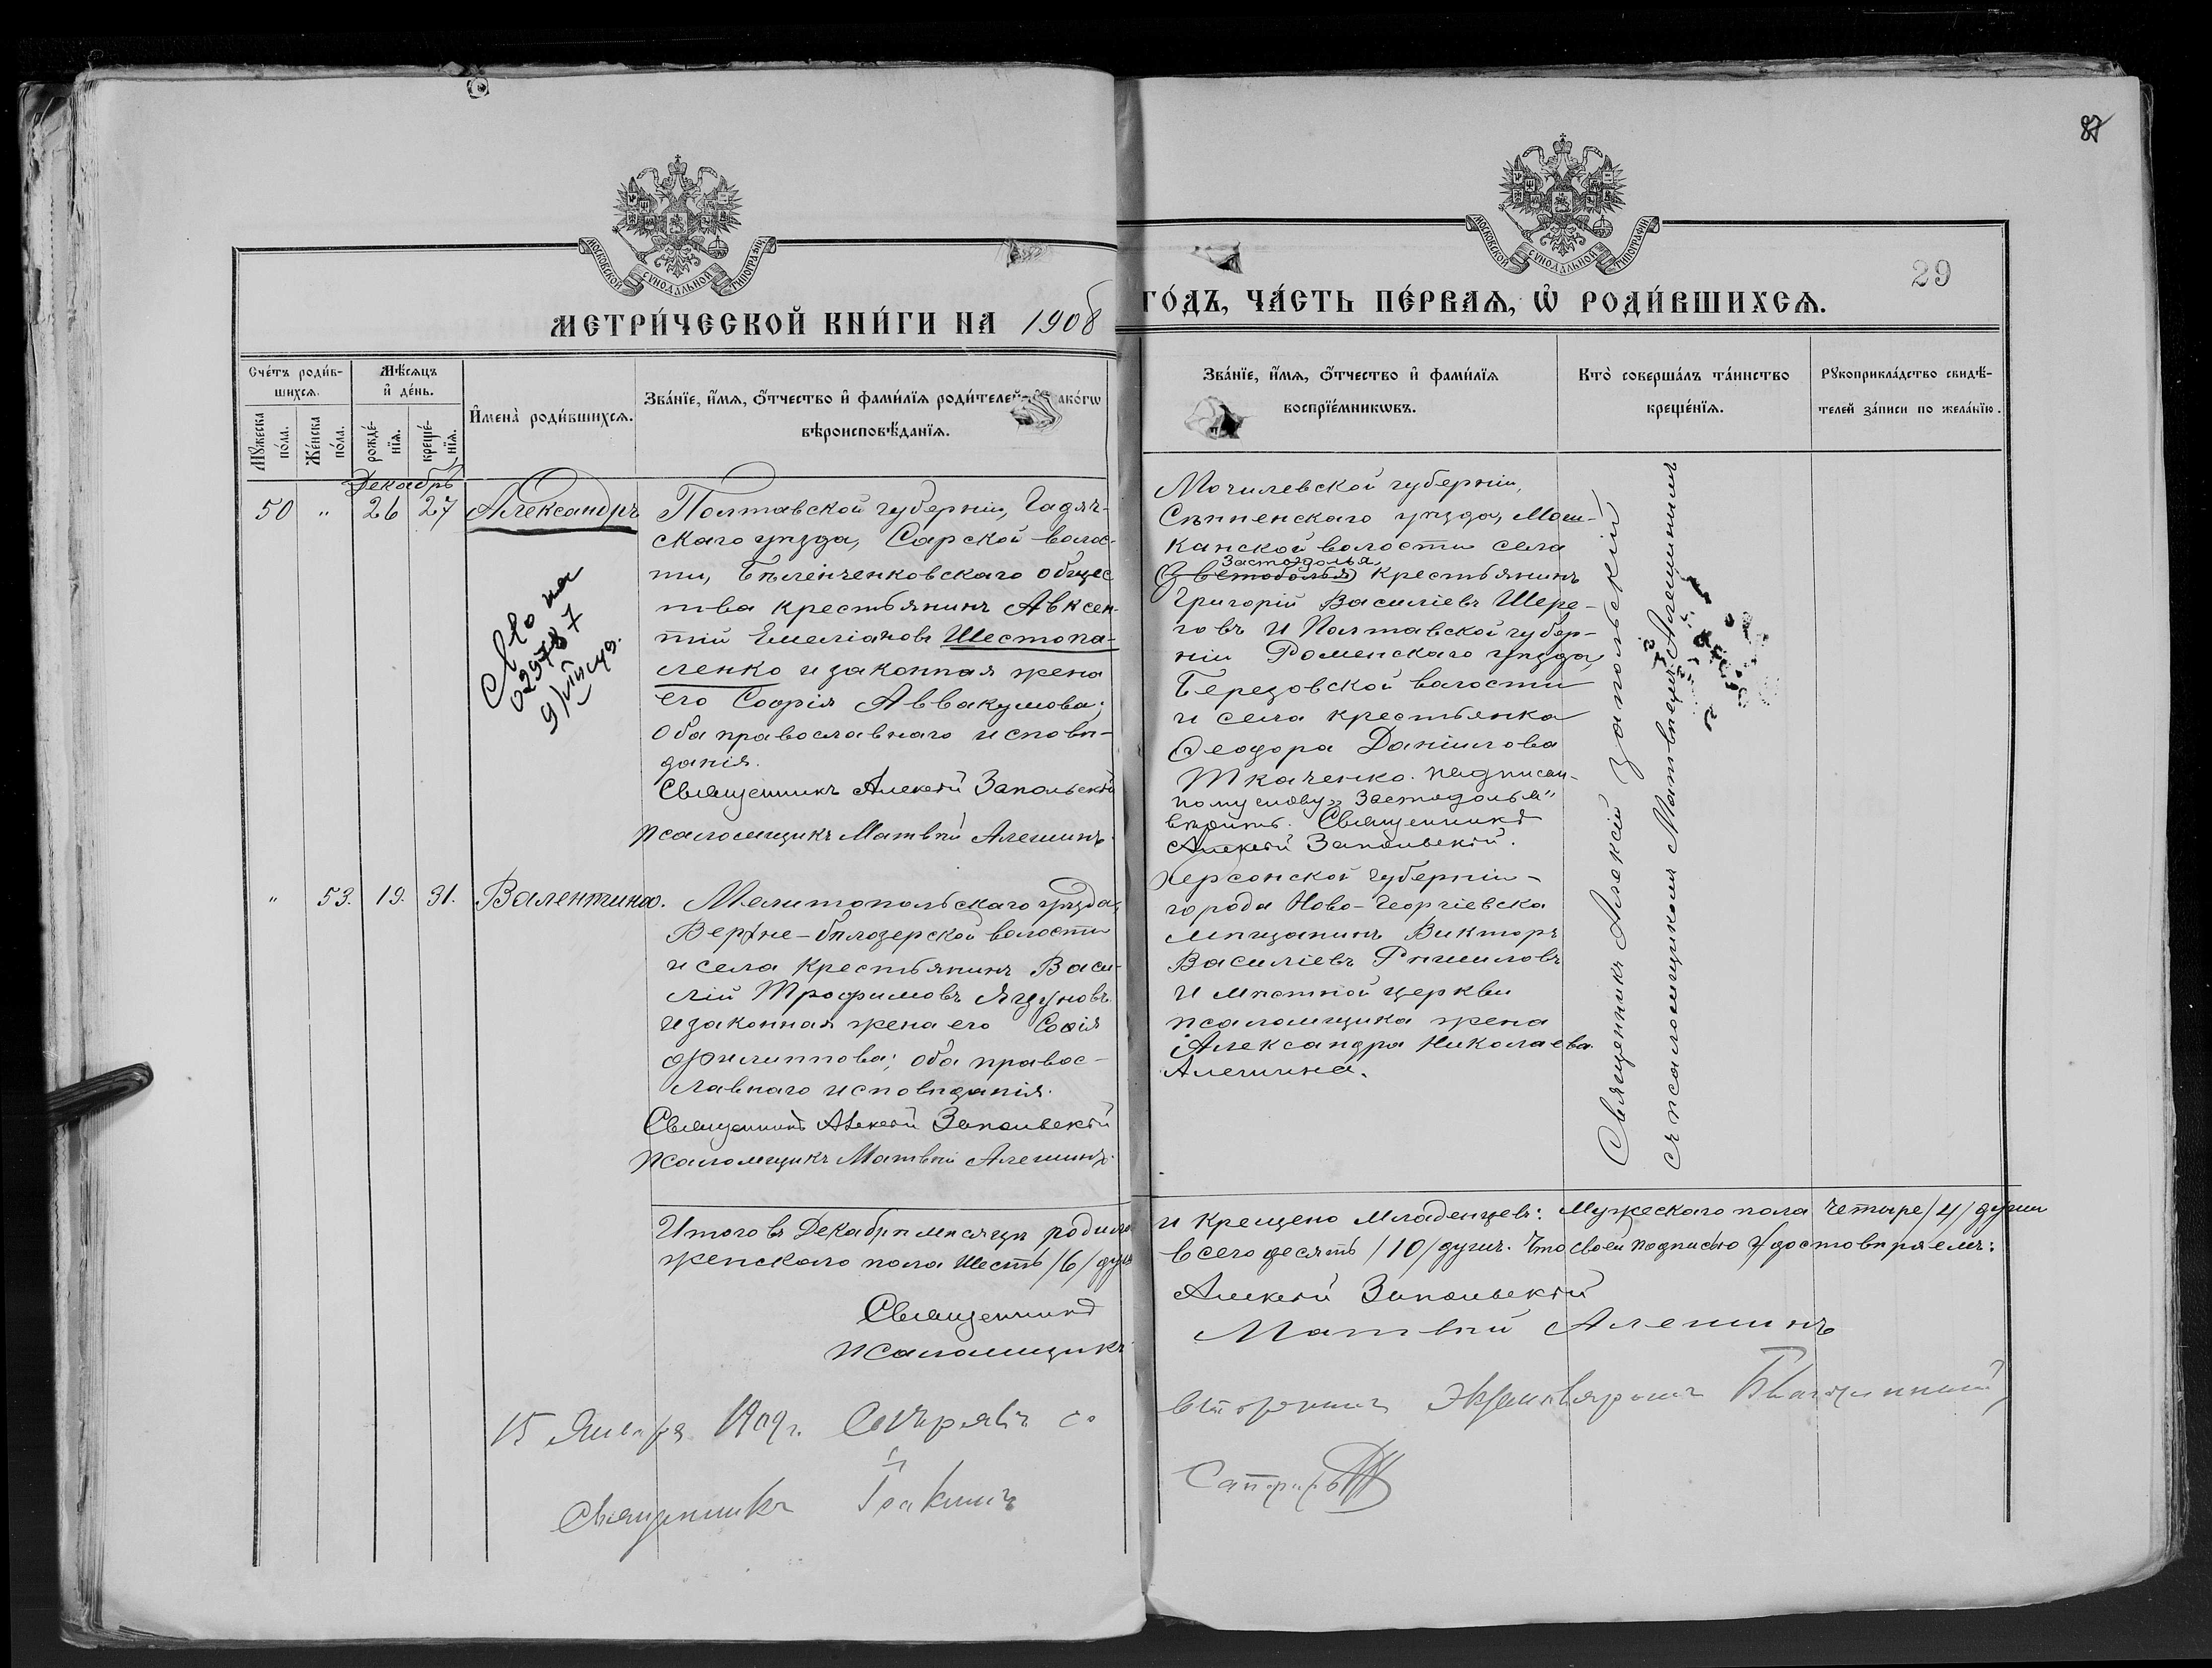 87
МОСКОВСКОЙ СѴНОДАЛЬНОЙ ТИПОГРАФІИ
МОСКОВСКОЙ СѴНОДАЛЬНОЙ ТИПОГРАФІИ
29
МЕТРИ́ЧЕСКОЙ КНИ́ГИ НА 1908
ГО́ДЪ, ЧА́СТЬ ПЕ́РВАѦ, Ѡ҆ РОДИ́ВШИХСѦ.
Сче́тъ роди́в-
шихсѧ.
Мѣ́сѧцъ
и҆ де́нь.
Мꙋ́жеска
по́ла.
Же́нска
по́ла.
рожде́-
нїѧ.
креще́-
нїѧ.
И҆мена̀ роди́вшихсѧ.
Зва́нїе, и҆́мѧ, ѻ҆́тчество и҆ фами́лїѧ роди́телей и҆ како́гѡ
вѣроисповѣ́данїѧ.
Зва́нїе, и҆́мѧ, ѻ҆́тчество и҆ фами́лїѧ
воспрїе́мникѡвъ.
Кто̀ соверша́лъ та́инство
креще́нїѧ.
Рꙋкоприкла́дство свидѣ́-
телей за́писи по жела́нїю.
Декабрь
50 " 26 27 Александръ
Полтавской губерніи, Гадяч-
скаго уѣзда, Сарской волос-
ти, Бѣленченковскаго общес
тва крестьянинъ Авксен-
тій Емеліановъ Шестопа-
ленко и законная жена
его Софія Аввакумова;
оба православнаго исповѣ-
данія.
Священникъ Алексѣй Запольскій
Псаломщикъ Матвѣй Алешинъ.
Могилевской губерніи,
Сѣнненскаго уѣзда, Мош-
канской волости села
Застодолья
крестьянинъ
Григорій Василіевъ Шере-
говъ и Полтавской губер-
ніи Роменскаго уѣзда,
Березовской волости
и села крестьянка
Ѳеодора Даніилова
Ткаченко. Надписан-
ному слову „Застодолья"
вѣрить. Священникъ
Алексѣй Запольскій.
Священникъ Алексій Запольскій
съ псаломщикомъ Матвѣемъ Алешинымъ
" 53. 19. 31. Валентина.
Мелитопольскаго уѣзда,
Верхне-бѣлозерской волости
и села крестьянинъ Васи-
лій Трофимовъ Ягуновъ
и законная жена его Софія
Филиппова; оба правос-
лавнаго исповѣданія.
Священникъ Алексѣй Запольскій
Псаломщикъ Матвѣй Алешинъ.
Херсонской губерніи-
города Ново-Георгіевска
мѣщанинъ Викторъ
Василіевъ
и мѣстной церкви
псаломщика жена
Александра Николаева
Алешина.
Итого въ Декабрѣ мѣсяцѣ родилось и крещено младенцевъ: мужескаго пола четыре /4/ души
женскаго пола шесть /6/ душъ всего десять /10/ душъ. Что своей подписью удостовѣряемъ:
Священникъ Алексѣй Запольскій
Псаломщикъ Матвѣй Алешинъ
15 Января 1909г. Свѣрялъ со вторымъ экземпляромъ Благочинный,
Священникъ